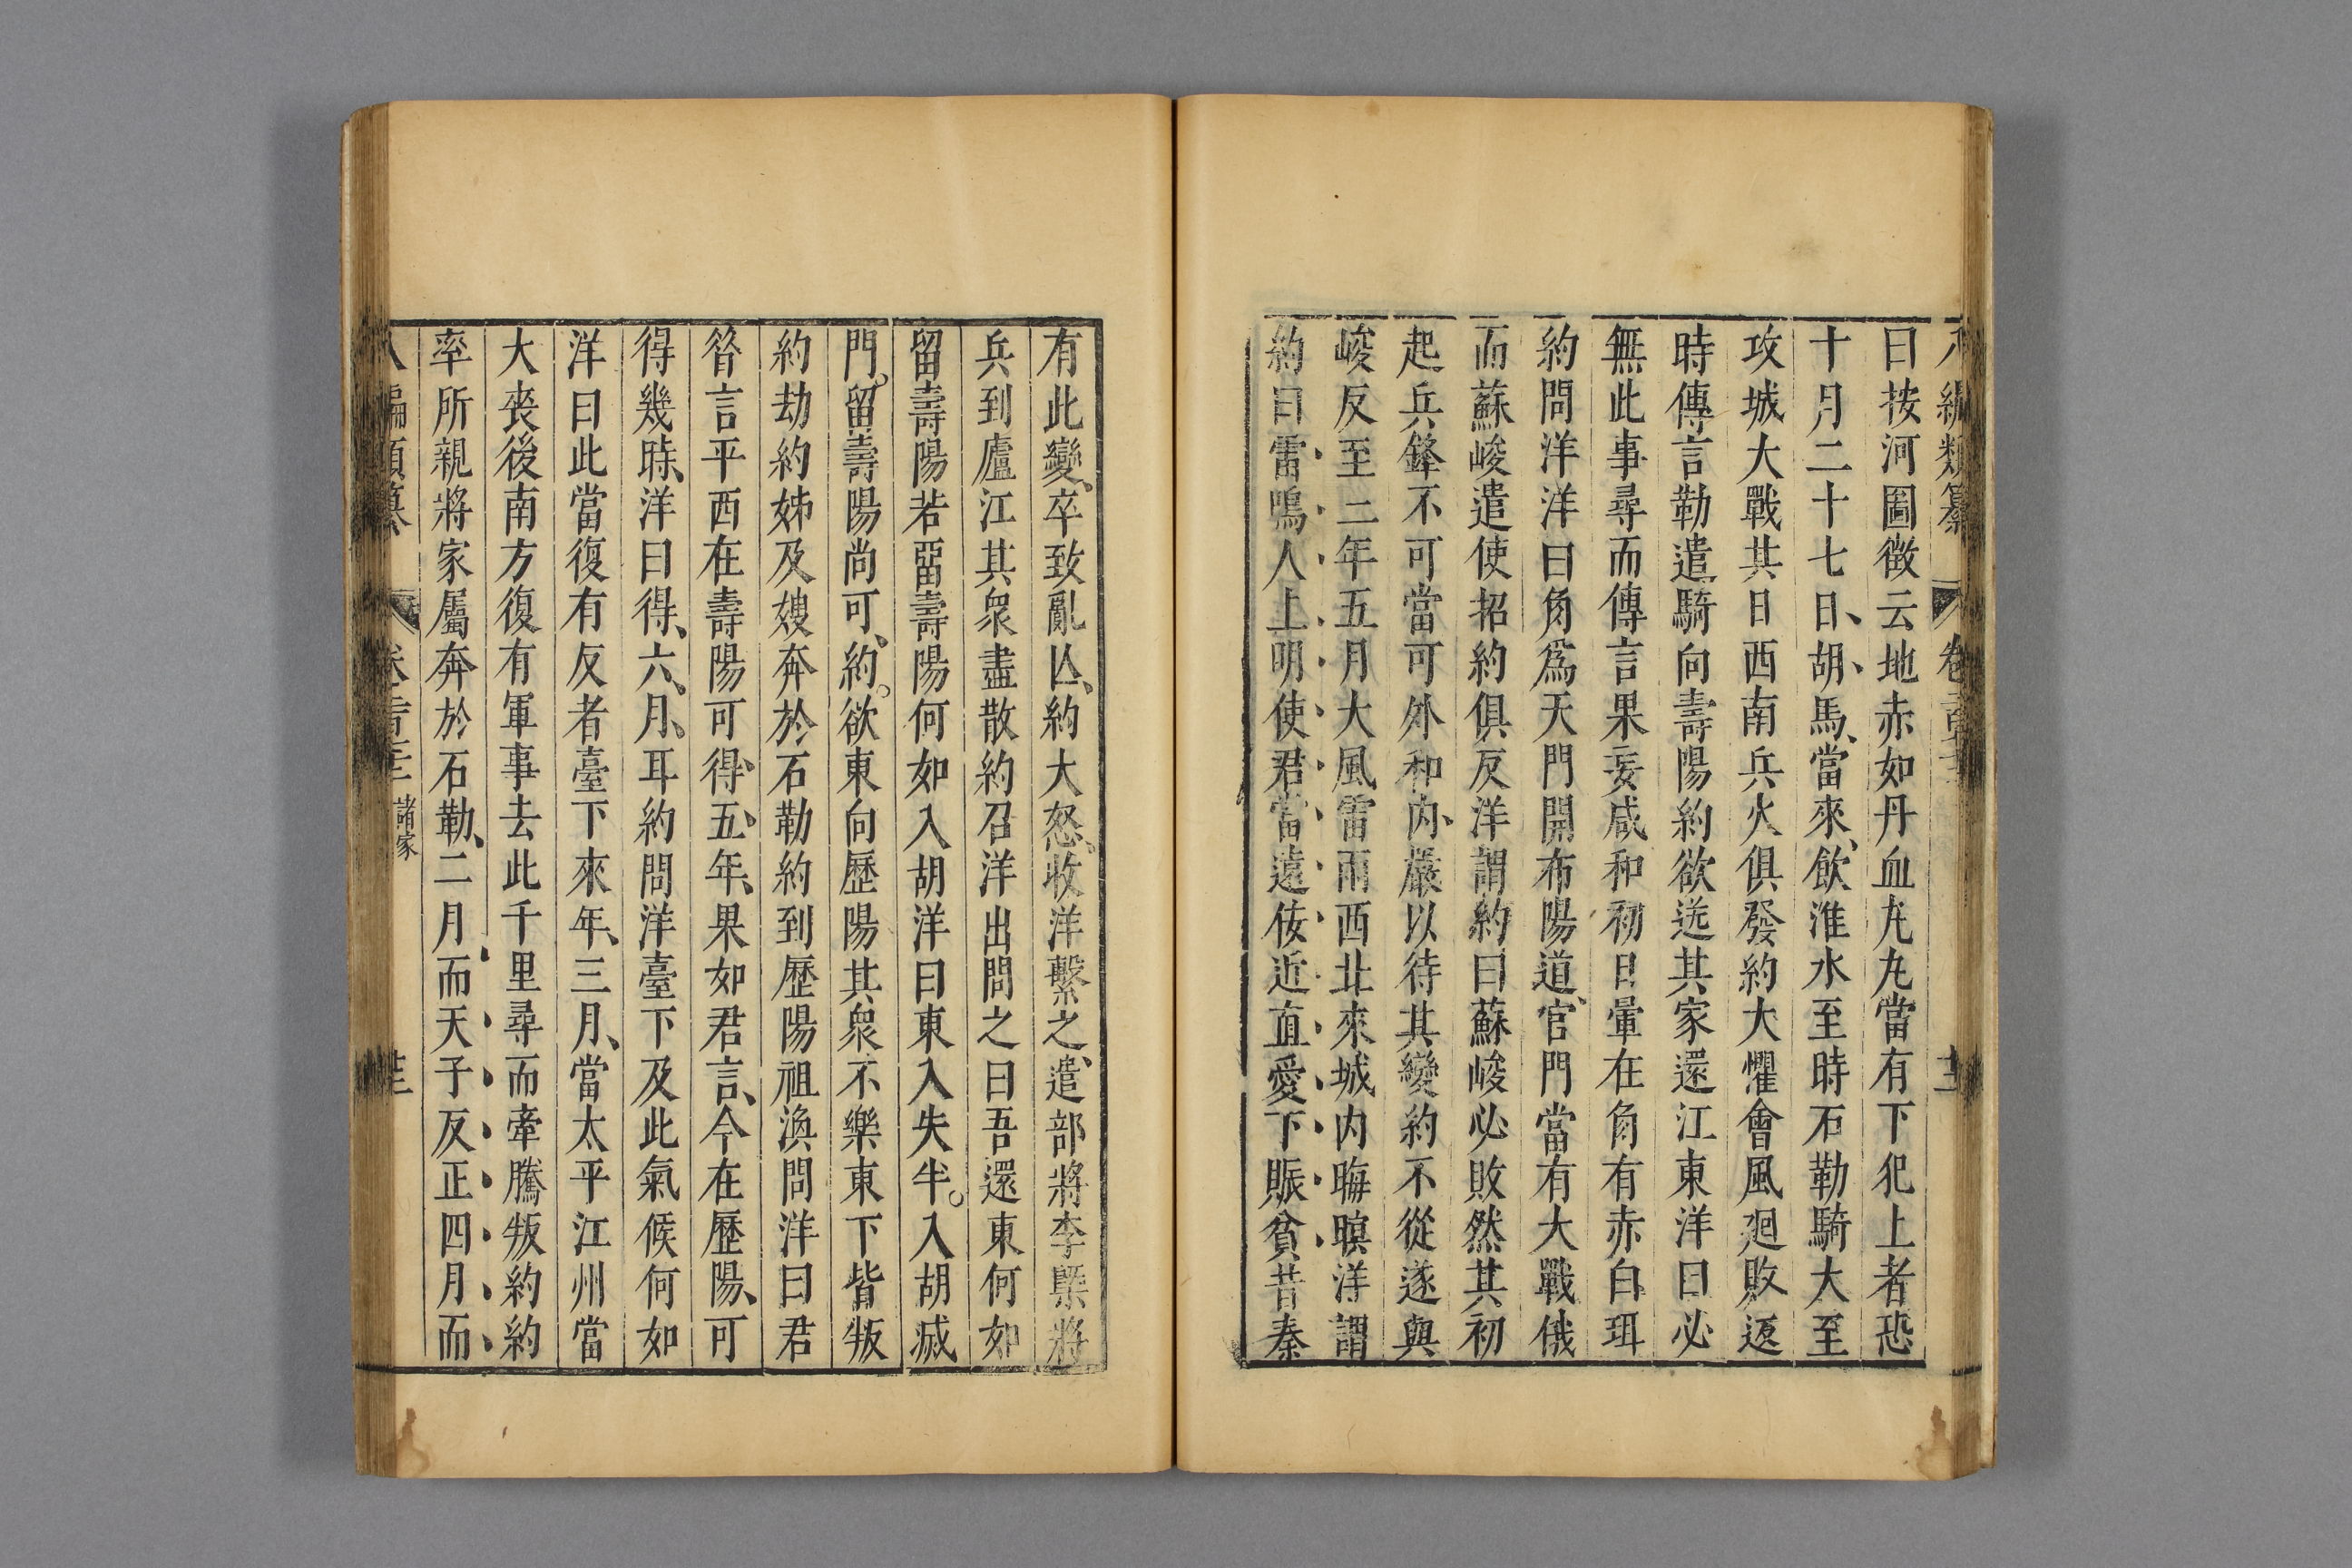 八編類纂 卷
曰按河圖徵云地赤如丹血丸丸當有下犯上者恐
十月二十七日、胡、馬、當來、飲淮水至時石勒騎大至
攻城大戰其日西南兵火俱發約大懼會風廻敗返
時傳言勒遣騎向壽陽約欲送其家還江東洋曰必
無此事尋而傳言果妄咸和初日暈在角有赤白珥
約問洋洋曰角爲天門開布陽道、官門當有大戰俄
而蘇峻遣使招約俱反洋謂約曰蘇峻必敗然其初
起兵鋒不可當可外和內、嚴以待其變約不從遂與
峻反至二年五月大風雷雨西北來城內晦暝洋謂
約曰雷鳴人上明使君當遠佞近直愛下賑貧昔秦
有此變、卒致亂亾、約大怒、收洋繫之、遣部將李㮣將
兵到廬江其衆盡散約召洋出問之曰吾還東何如
留壽陽若留壽陽何如入胡洋曰東入失半。入胡滅
門。留壽陽尚可、約。欲東向歷陽其衆不樂東下皆叛
約劫約姊及嫂奔於石勒約到歷陽祖渙問洋曰君
昝言平西在壽陽可得、五、年、果如君言、今在歷陽、可
得幾時、洋曰得、六、月、耳約問洋臺下及此氣候何如
洋曰此當復有反者臺下來年、三月、當太平江州當
大喪後南方復有軍事去此千里尋而牽騰叛約約
率所親將家屬奔於石勒、二月而天子反正四月而
八編類纂 卷 諸家